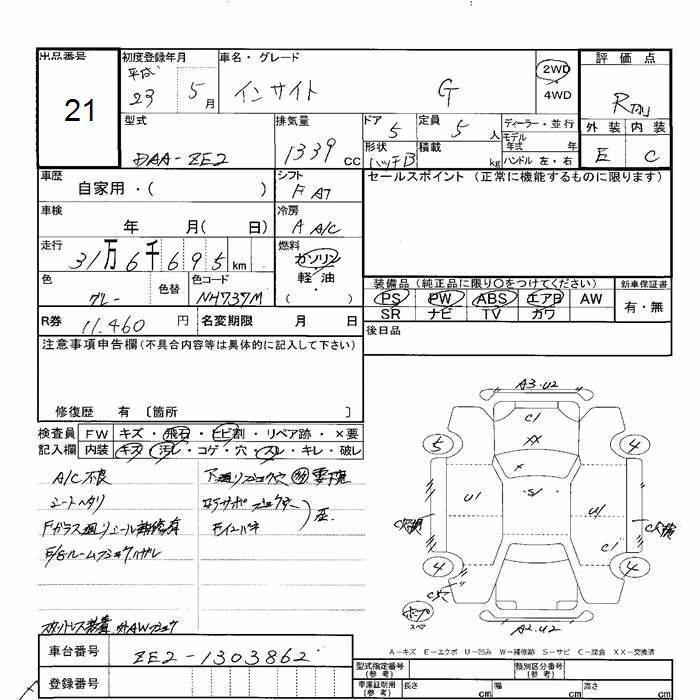 出品番号
21
初度登録年月
平成
23 5月
車名・グレード
インサイト G
2WD
4WD
評価点
R
外装 内装
E C
型式
DAA-ZE2
排気量
1339 CC
ドア 5
定員 5 人
形状
積載 kg
ディーラー・並行
モデル
年式 年
ハンドル 左・右
車歴
自家用・( )
シフト
F AT
セールスポイント (正常に機能するものに限ります)
車検
年 月( 日)
冷房
A A/C
走行
31万6千695km
燃料
ガソリン
軽・油
( )
色
グレー
色替
色コード
NH737M
装備品(純正品に限り○をつけてください)
PS PW ABS エアB AW
SR ナビ TV カワ
新車保証書
有・無
R券 11.460 円
名変期限 月 日
後日品
注意事項申告欄(不具合内容等は具体的に記入して下さい)
修復歴 有 〔箇所 〕
検査員 FW キズ・飛石・ヒビ割・リペア跡・×要
記入欄 内装 キズ・汚レ・コゲ・穴・スレ・キレ・破レ
A/C不良
シートヘタリ
A3.U2
C1
XX
5 4
X
S1
U1 U1
C1
4 4
A2.U2
A-キズ E-エクボ U-凹み W-補修跡 S-サビ C-腐食 XX-交換済
車台番号
ZE2-1303862
登録番号
型式指定番号
(参考)
類別区分番号
(参考)
車庫証明用
(参考)
長さ cm 幅 cm 高さ cm